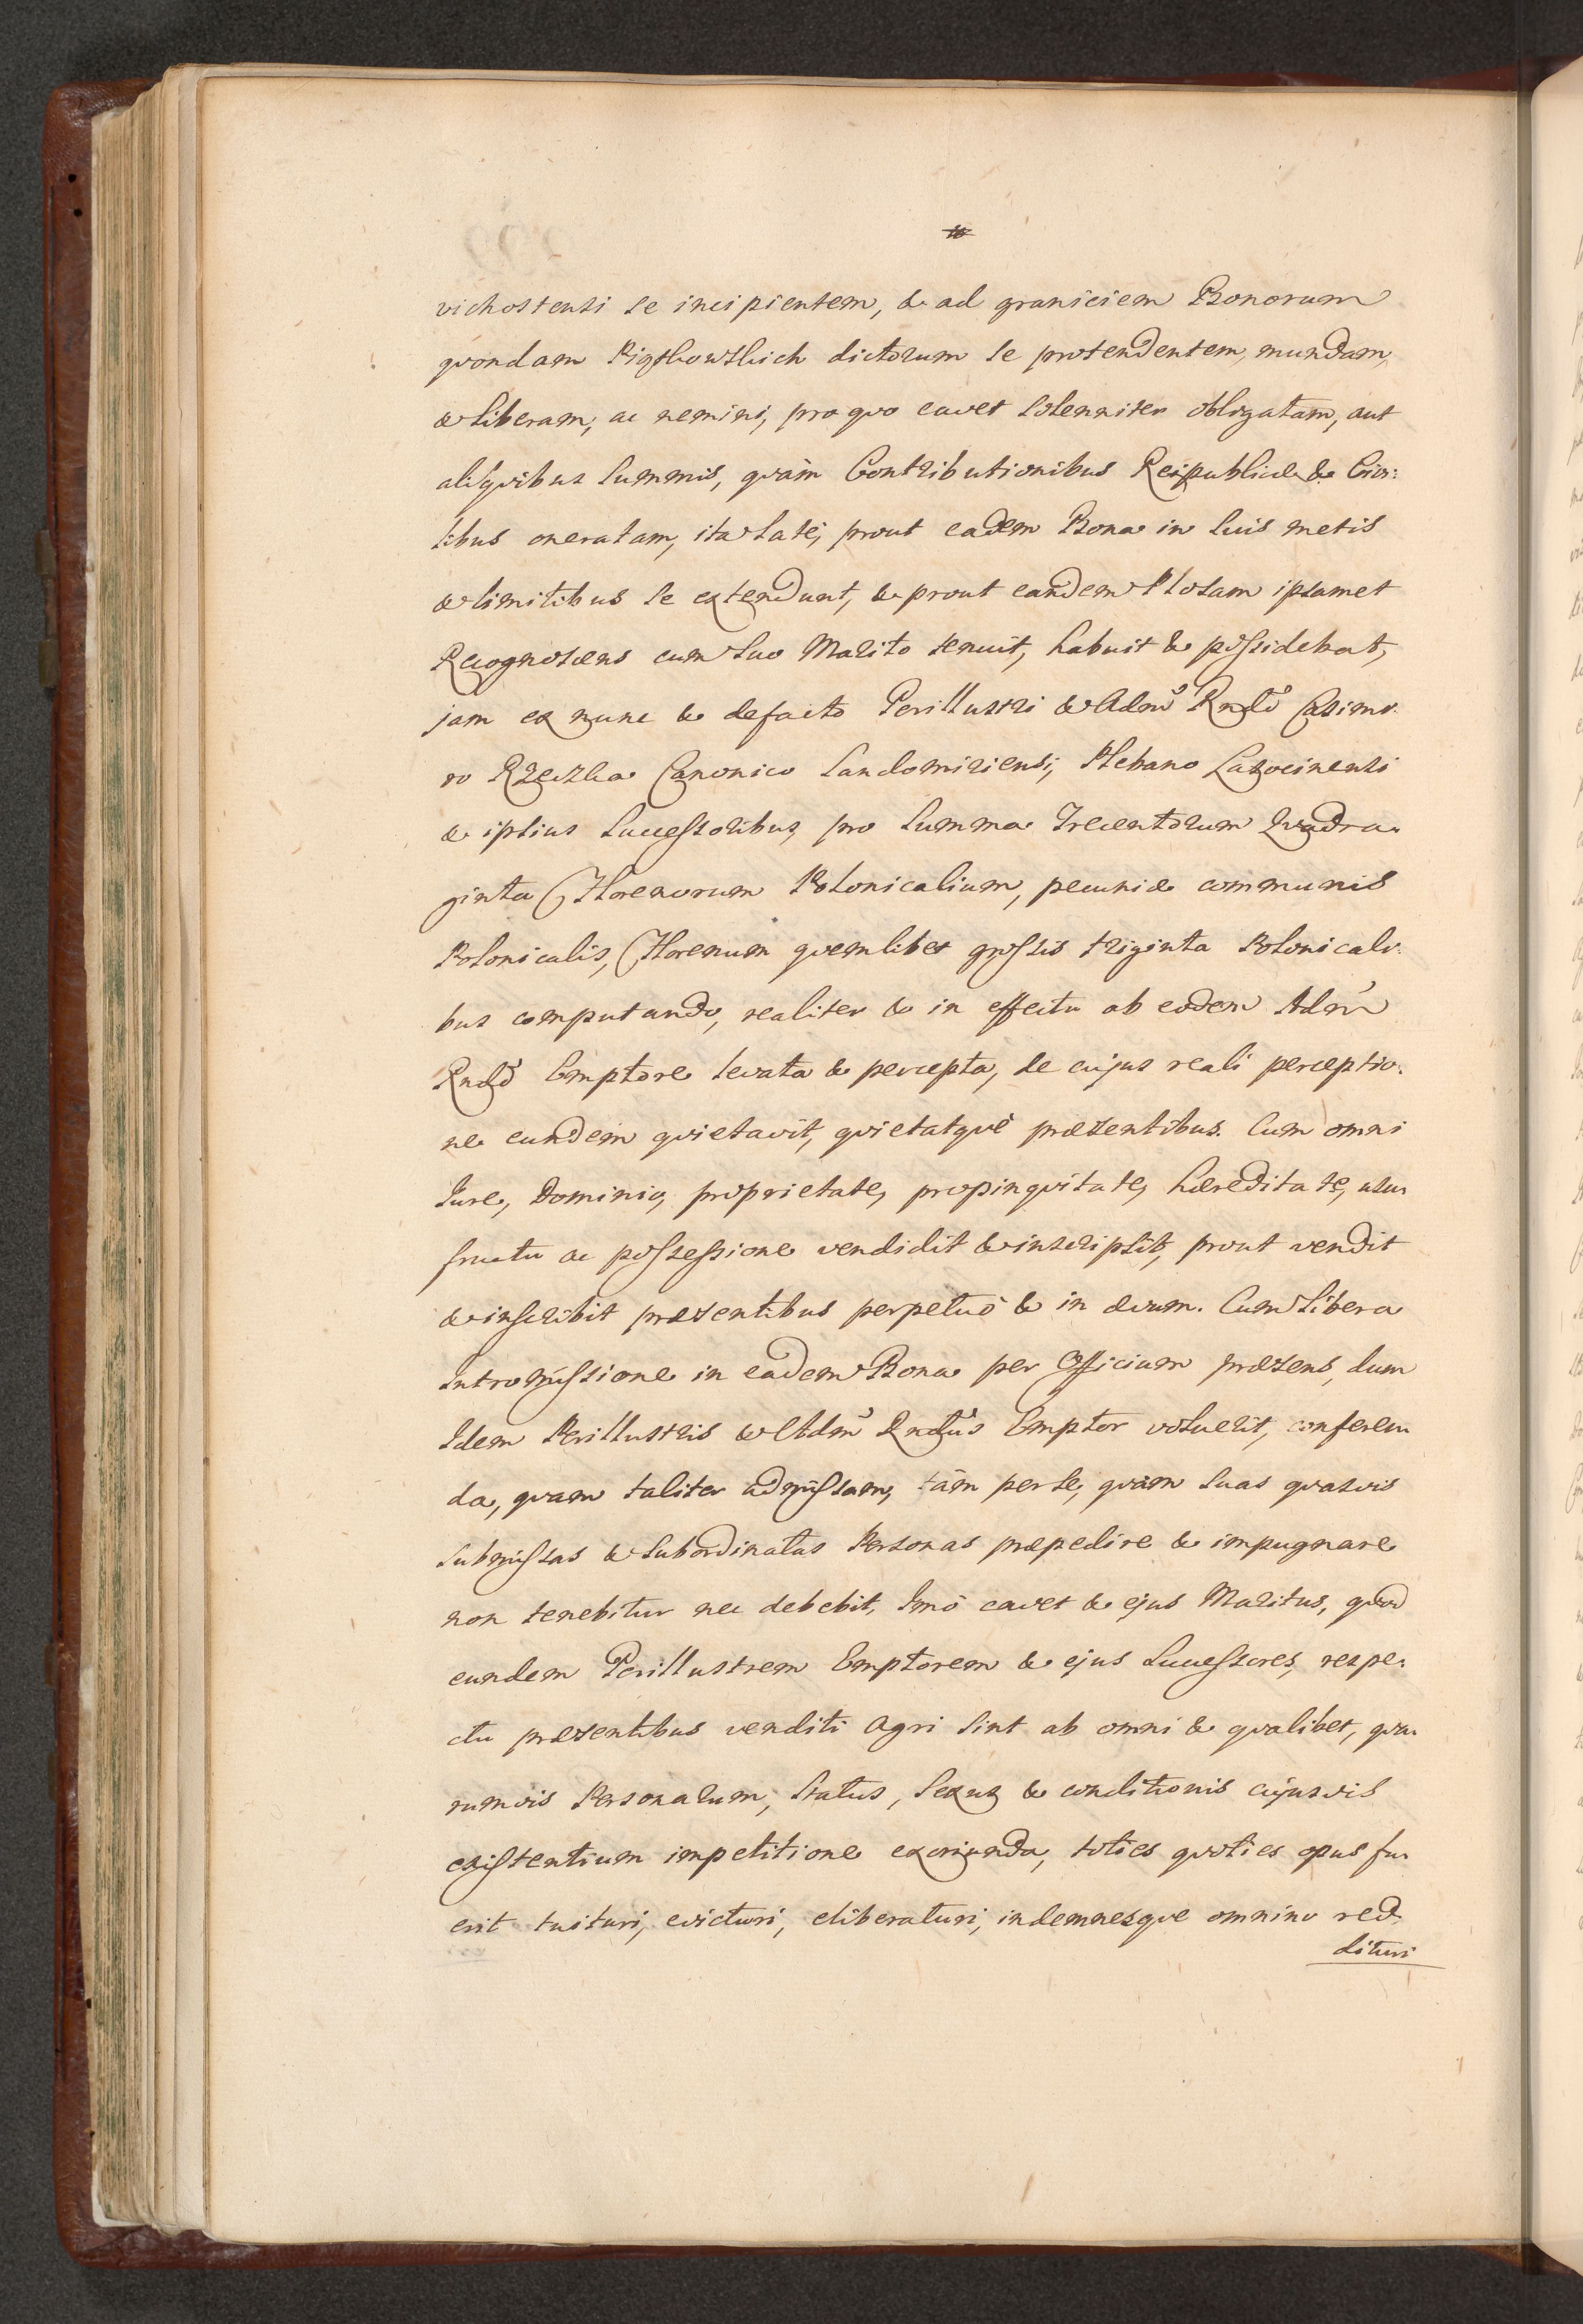 vichostensi se incipientem, & ad graniciem Bonorum
qvondam dictorum se protendentem, mundam,
& liberam, ac nemini, pro qvo cavet solenniter obligatam, aut
aliqvibus summis, qvàm Contributionibus Reipublicæ & Civi:
libus oneratam, ita latè, prout eadem Bona in suis metis
& limitibus se extendunt, & prout eandem Plosam ipsamet
Recognoscens cum suo Marito tenuit, habuit & possidebat,
jam ex nunc & defacto Perillustri & Adm̃ Rndõ Casimi-
ro Rzeczka Canonico Sandomiriensi, Plebano Lasocinensi
& ipsius Successoribus, pro summa Trecentorum Qvadra-
ginta Florenorum Polonicalium, pecuniæ communis
Polonicalis, Florenum qvemlibet grossis triginta Polonicali-
bus computando, realiter & in effectu ab eodem Adm̃
Rndõ Emptore levata & percepta, de cujus reali perceptio-
ne eundem qvietavit, qvietatqvè præsentibus. Cum omni
Jure, Dominio, proprietate, propinqvitate, hæreditate, usu-
fructu ac possessione vendidit & inscripsit, prout vendit
& inscribit præsentibus perpetuò & in ævum. Cum libera
Intromissione in eadem Bona per Officium præsens, dum
Idem Perillustris & Adm̃ Rndus Emptor voluerit, conferen-
da, qvam taliter admissam, tàm per se, qvàm suas qvasvis
submissas & subordinatas Personas præpedire & impugnare
non tenebitur nec debebit, Imò cavet & ejus Maritus, qvod
eundem Perillustrem Emptorem & ejus Successores, respe-
ctu præsentibus venditi agri sint ab omni & qvalibet, qva-
rumvis Personarum, status, sexus & conditionis cujusvis
existentium impetitione exoriunda, toties qvoties opus fu-
erit tuituri, evicturi, eliberaturi, indemnesqve omnino red-
dituri